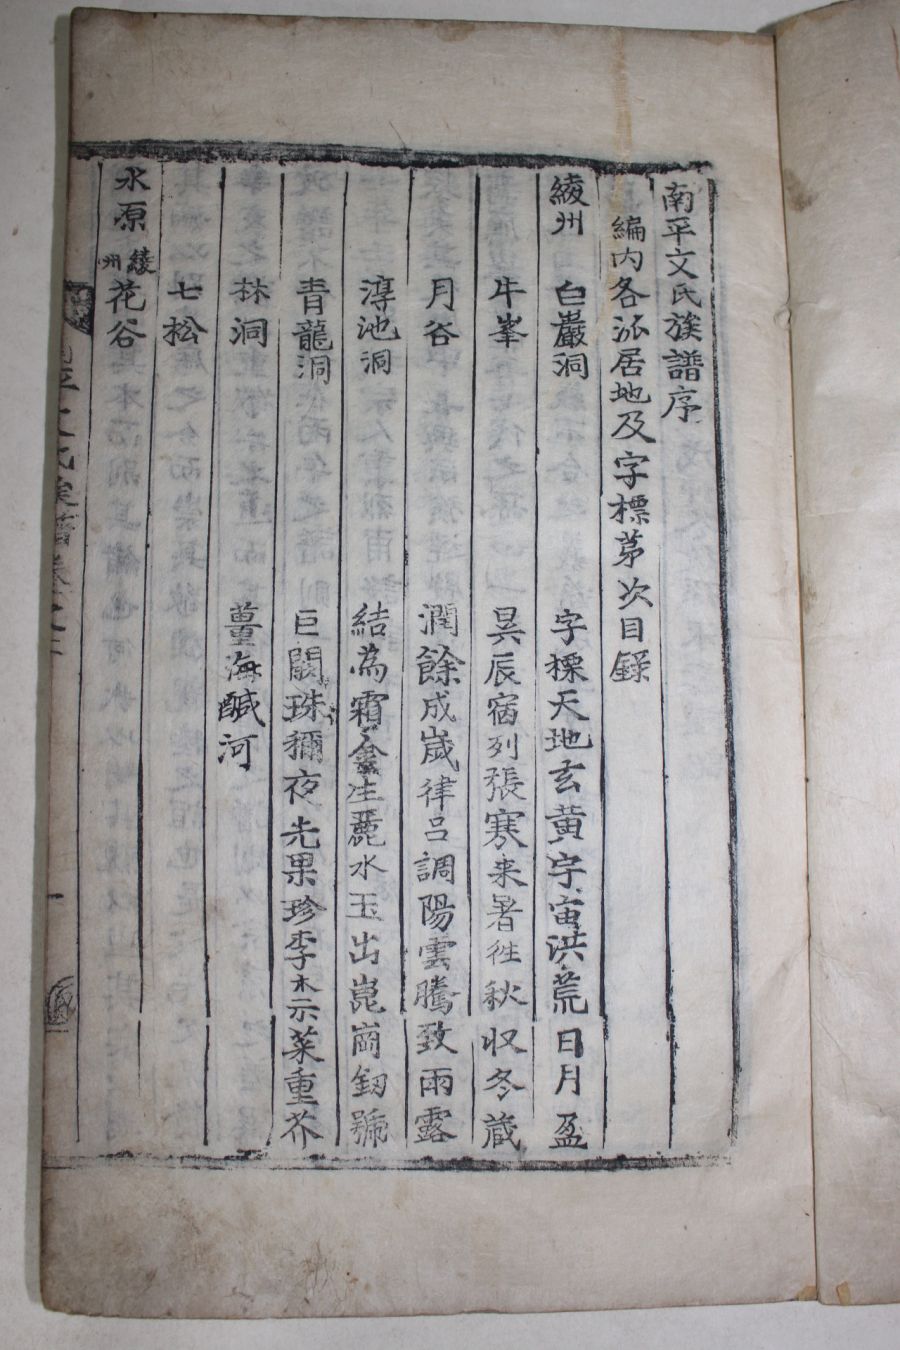 南平文氏族譜序
編内各派居地及字標苐次目錄
綾州 白巖洞 字標天地玄黃宇宙洪荒日月盈
牛峯 昃辰宿列張寒来暑徃秋収冬藏
月谷 潤餘成嵗律呂調陽雲騰致雨露
淳池洞 結為霜金生麗水玉出崑崗釰號
青龍洞 巨闕珠稱夜光果珍李柰菜重芥
林洞 薑海醎河
七松
水原 綾州 花谷
南平文氏族譜卷之